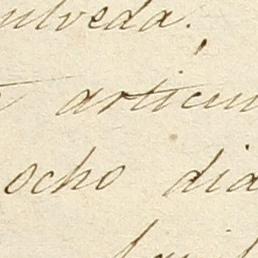 ulveda.
articu
ocho dia